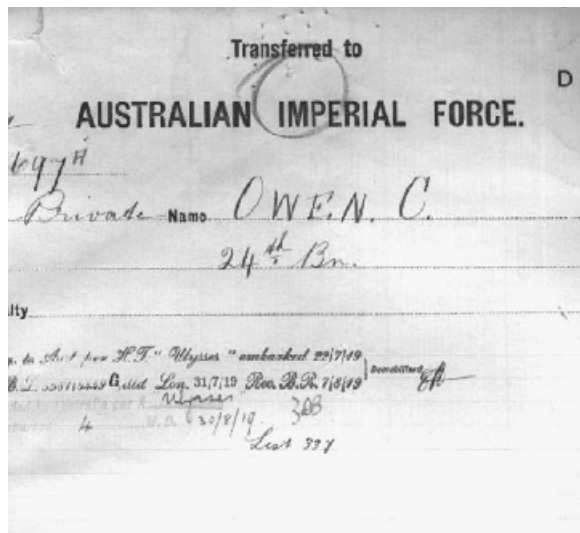 Transferred to
D
AUSTRALIAN IMPERIAL FORCE.
697A
Private Name OWEN. C.
24th Bn.
lty
to Aust per H.T. "Ulysses" embarked 22/7/19
G, dtd Lon. 31/7/19 Rec. B.R. 7/8/19 Demobilised
Ulysses
4 30/8/19 3DB
List 337